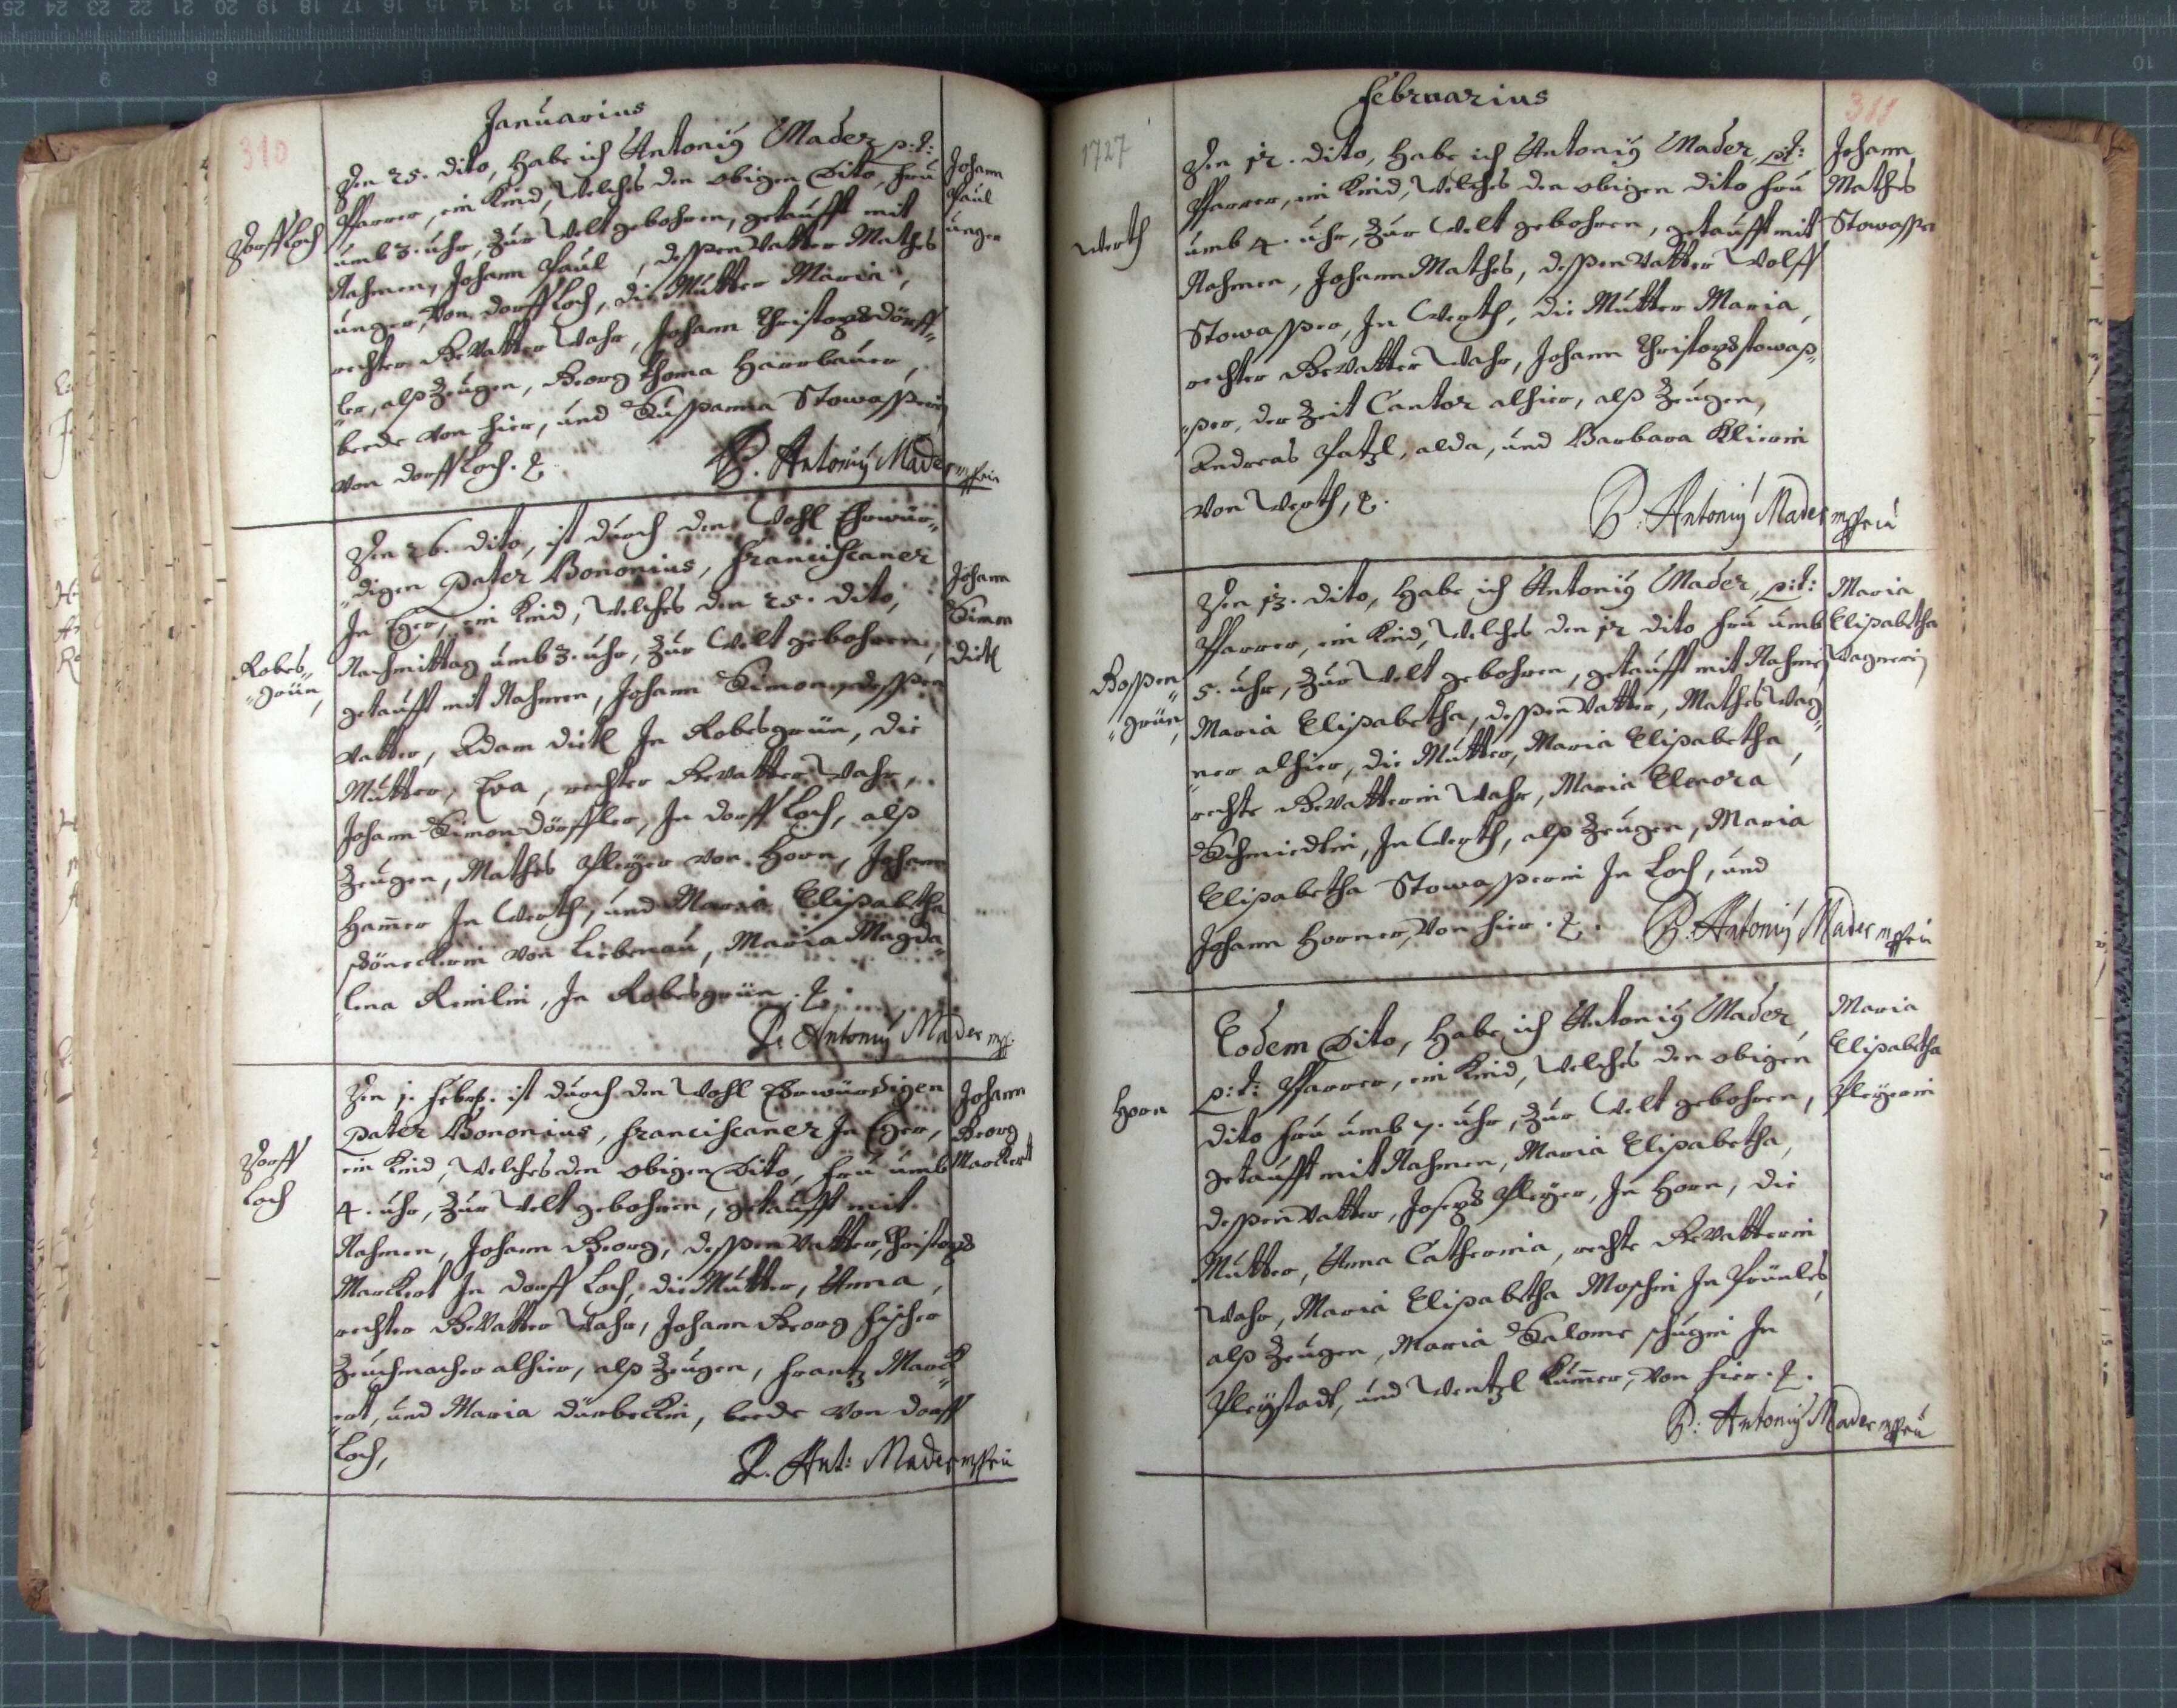 Januarius
310
Den 25. dito, habe ich Antonius Mader p: t:
Pfarrer, ein Kind, welches den obigen Dito, fru
umb 3. uhr, zur Welt gebohren, getaufft mit
Nahmen, Johann Paul, dessen Vatter Mathes
unger, von dorff Loch, die Mutter Maria,
rechter Gevatter wahr, Johann Christoph dörff„
„ler, alß Zeugen, Georg Thoma Harrbauer,
beede von hier, und Sussanna Stowasserin
von dorff Loch. etc.
P. Antonius Mader mppria
Dorff Loch
Johann
Paul
unger
Den 26. dito, ist durch den Wohl Ehrwür„
„digen Pater Bononius, Franciscaner
In Eger, ein Kind, welches den 25. dito,
Nachmittag umb 3. uhr, zur Welt gebohren,
getaufft mit Nahmen, Johann Simon, dessen
Vatter, Adam dietl In Robesgrün, die
Mutter, Eva, rechter Gevatter wahr,
Johann Simon dörffler, In dorff Loch, alß
Zeugen, Mathes Pleyer von Horn, Johann
Ham̅er In Werth, und Maria Elisabetha
von Liebenau, Maria Magda„
„lena In Robesgrün. etc.
P. Antonius Mader mpp.
Robes„
„grün,
Johann
Simon
dietl
Den 1. Febr. ist durch den Wohl Ehrwürdigen
Pater Bononius, Franciscaner In Eger,
ein Kind, welches den obigen Dito, fru umb
4. uhr, zur Welt gebohren, getaufft mit
Nahmen, Johann Georg, dessen Vatter, Christoph
Marckert In dorff Loch, die Mutter, Anna,
rechter Gevatter wahr, Johann Georg Fischer
Zeuchmacher alhier, alß Zeugen, Frantz Marck„
„ert, und Maria dürbeckin, beede von dorff
Loch,
P. Ant: Mader mppria
Dorff
Loch
Johann
Georg
Marckert
Februarius
1727
311
Den 12. dito, habe ich Antonius Mader, p: t:
Pfarrer, ein Kind, welches den obigen dito fru
umb 4. uhr, zur Welt gebohren, getaufft mit
Nahmen, Johann Mathes, dessen Vatter Wolff
Stowasser, In Werth, die Mutter Maria,
rechter Gevatter wahr, Johann Christoph stowas„
„ser, der Zeit Cantor alhier, alß Zeugen,
Andreas Patzl, alda, und Barbara Klierin
von Werth, etc.
P. Antonius Mader mppria
Werth
Johann
Mathes
Stowasser
Den 13. dito, habe ich Antonius Mader, p: t:
Pfarrer, ein Kind, welches den 12 dito fru umb
5. uhr, zur Welt gebohren, getaufft mit Nahmen
Maria Elisabetha, dessen Vatter, Mathes Wag„
„ner alhier, die Mutter, Maria Elisabetha,
rechte Gevatterin wahr, Maria Elenora
Schmiedtin, In Werth, alß Zeugen, Maria
Elisabetha Stowasserin In Loch, und
Johann Horner, von hier. etc.
P. Antonius Mader mppria
Gossen„
„grün,
Maria
Elisabetha
Wagnerin
Eodem Dito, habe ich Antonius Mader,
p: t: Pfarrer, ein Kind, welches den obigen
dito fru umb 7. uhr, zur Welt gebohren,
getaufft mit Nahmen, Maria Elisabetha,
dessen Vatter, Joseph Pleyer, In Horn, die
Mutter, Anna Catherina, rechte Gevatterin
wahr, Maria Elisabetha Moschin In Prünles,
alß Zeugen, Maria Salome schugin In
Pleystadt, und Wentzl Kum̅er, von hier. etc.
P. Antonius Mader mppria
Horn
Maria
Elisabetha
Pleyerin